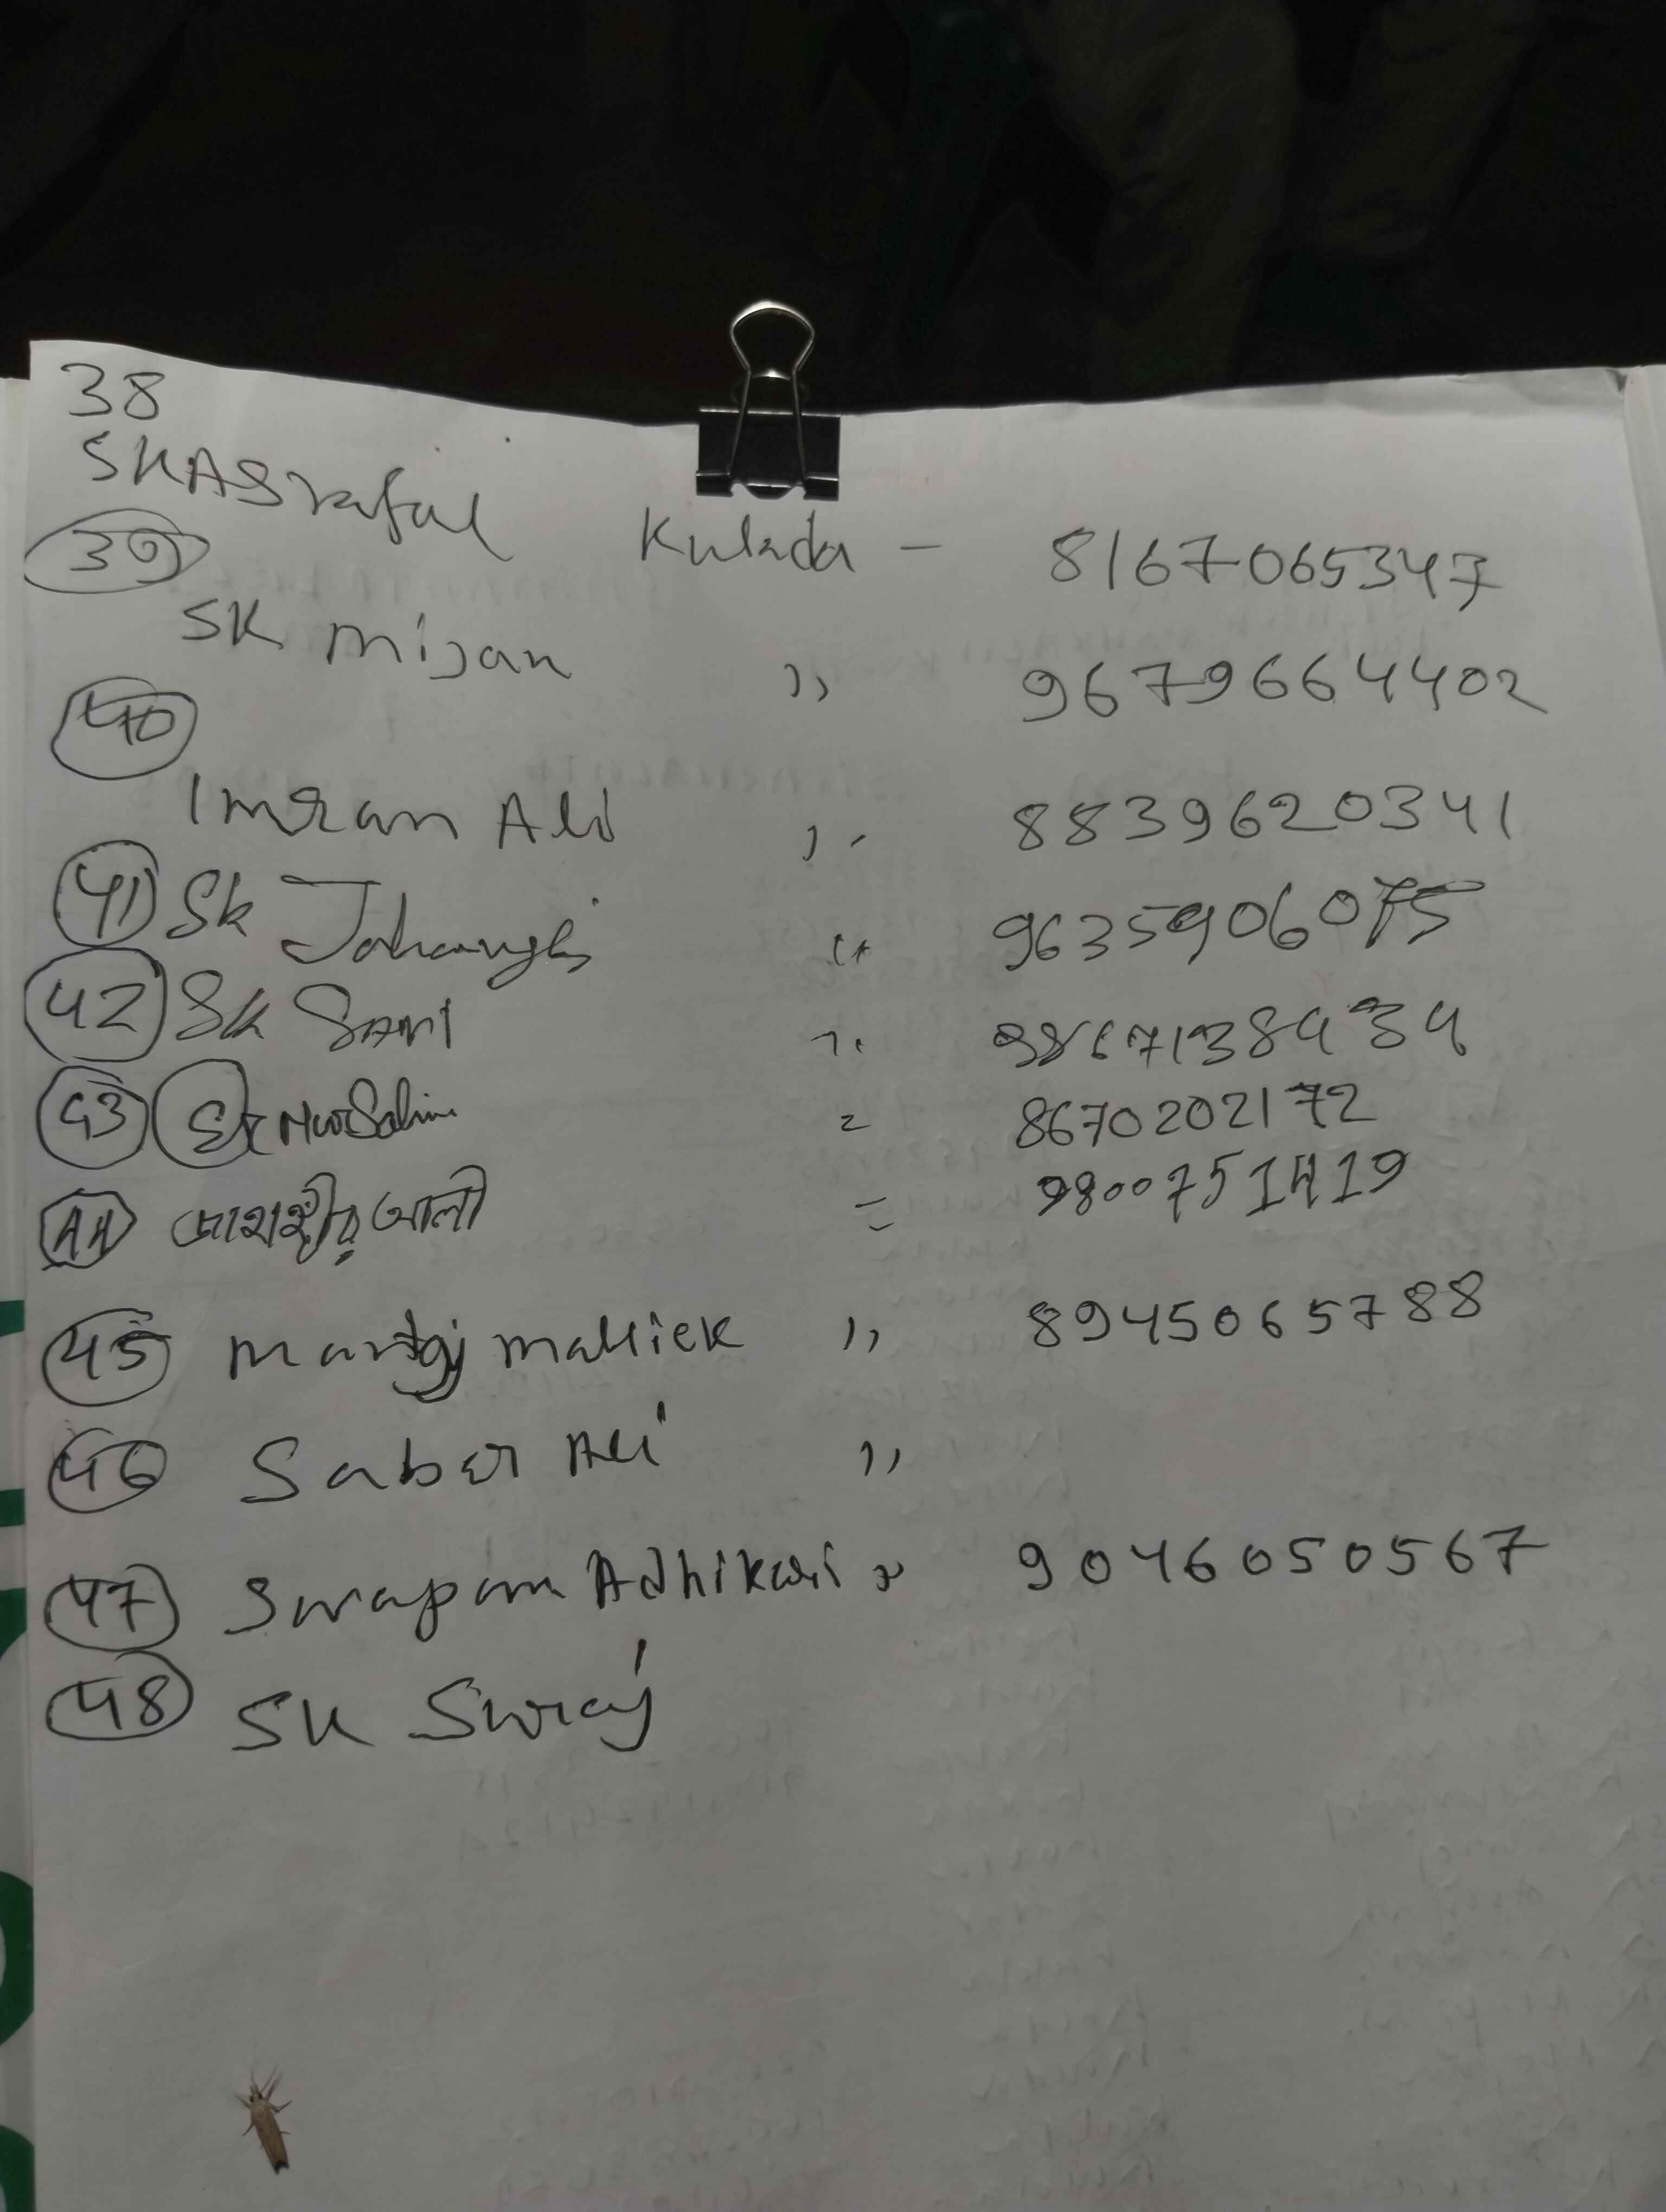 38
SK ASraful Kulada - 8167065347
39
SK Mijan " 9679664402
40
Imran Ali " 8839620341
41 Sk Jahangir " 9635906075
42 Sk SAMI "
43 SK Nur Salim = 8670202172
44 আলী = 9800751419
45 mallick " 8945065788
46 Saber Ali "
47 Swapan Adhikari " 9046050567
48 SK Suraj